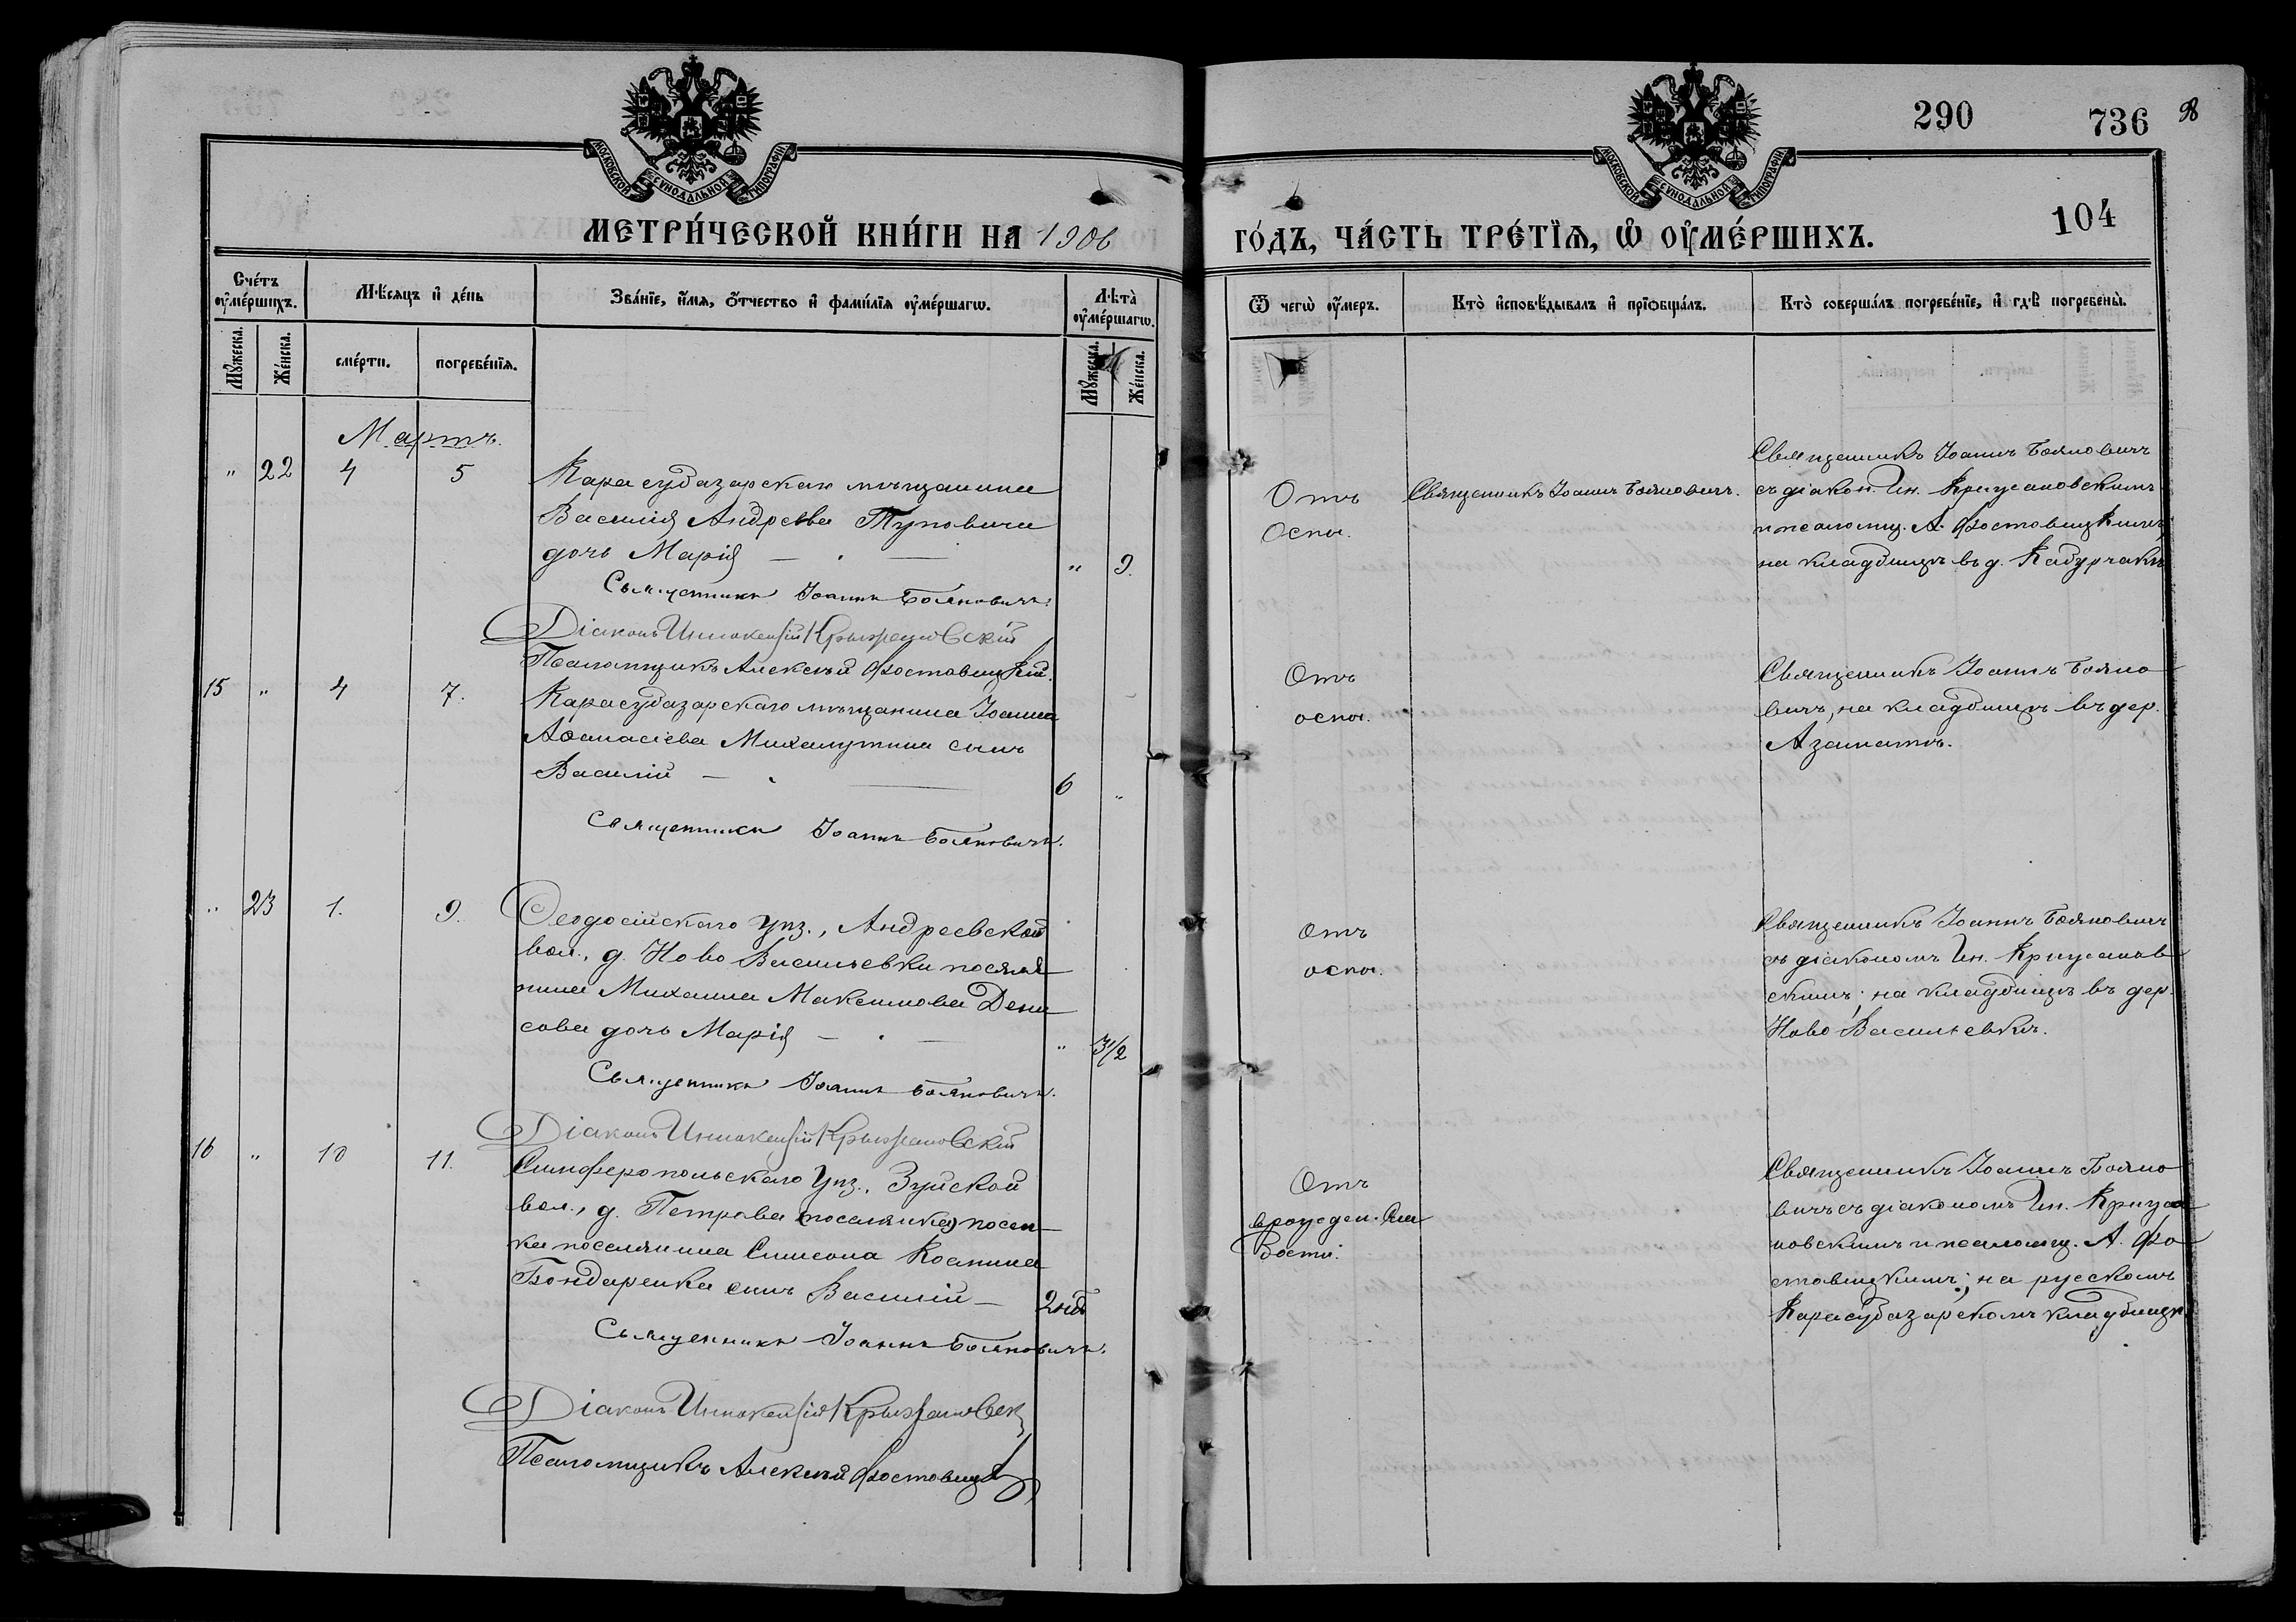 290
736
98
104
МОСКОВСКОЙ СѴНОДАЛЬНОЙ ТИПОГРАФІИ
МОСКОВСКОЙ СѴНОДАЛЬНОЙ ТИПОГРАФІИ
МЕТРИ́ЧЕСКОЙ КНИ́ГИ НА 1906
ГО́ДЪ, ЧА́СТЬ ТРЕ́ТЇѦ, Ѡ҆ ОУ҆МЕ́РШИХЪ.
Сче́тъ оу҆ме́ршихъ.
Мѣ́сяцъ и҆ де́нь
Зва́нїе, и҆́мѧ, ѻ҆́тчество и҆ фами́лїѧ оу҆ме́ршагѡ.
Лѣта̀ оу҆ме́ршагѡ.
Мꙋ́жеска.
Же́нска.
сме́рти.
погребе́нїѧ.
Мꙋ́жеска.
Же́нска.
Ѿ чегѡ̀ оу҆́меръ.
Кто̀ и҆сповѣ́дывалъ и҆ прїѡбща́лъ.
Кто̀ соверша́лъ погребе́нїе, и҆ гдѣ̀ погребены̀.
Мартъ.
" 22 4 5
Карасубазарскаго мѣщанина
Василія Андреева Туповича
дочь Марія — . —
" 9.
Священникъ Іоаннъ Бояновичъ.
Діаконъ Иннокентій Крыжановскій
Псаломщикъ Алексѣй Фоставицкій.
Отъ
Оспы.
Священникъ Іоаннъ Бояновичъ.
Священникъ Іоаннъ Бояновичъ
съ діакон. Ин. Крыжановскимъ
и псаломщ. А. Фоставицкимъ,
на кладбищѣ въ д. Кабурчакъ
15 " 4 7.
Карасубазарскаго мѣщанина Іоанна
Аѳанасіева Михалутина сынъ
Василій — . —
6 "
Священникъ Іоаннъ Бояновичъ.
Отъ
оспы.
Священникъ Іоаннъ Бояно
вичъ, на кладбищѣ въ дер.
Азаматъ.
" 23 1. 9.
Ѳеодосійскаго уѣз., Андреевской
вол., д. Ново Васильевки поселя
нина Михаила Максимова Дени
сова дочь Марія — . —
" 3½
Священникъ Іоаннъ Бояновичъ.
Діаконъ Иннокентій Крыжановскій
Отъ
оспы.
Священникъ Іоаннъ Бояновичъ
съ діакономъ Ин. Крыжанов
скимъ; на кладбищѣ въ дер.
Ново Васильевкѣ.
16 " 10 11.
Симферопольскаго уѣз., Зуйской
вол., д. Петрова (поселянка) посел
ка поселянина Симеона Косьмина
Бондаренка сынъ Василій —
2 нед
Священникъ Іоаннъ Бояновичъ.
Діаконъ Иннокентій Крыжановск
Псаломщикъ Алексѣй Фоставицкій
Отъ
врожден. Сла
бости.
Священникъ Іоаннъ Бояно
вичъ съ діакономъ Ин. Крыжа
новскимъ и псаломщ. А. Фо
ставицкимъ; на русскомъ
Карасубазарскомъ кладбищѣ